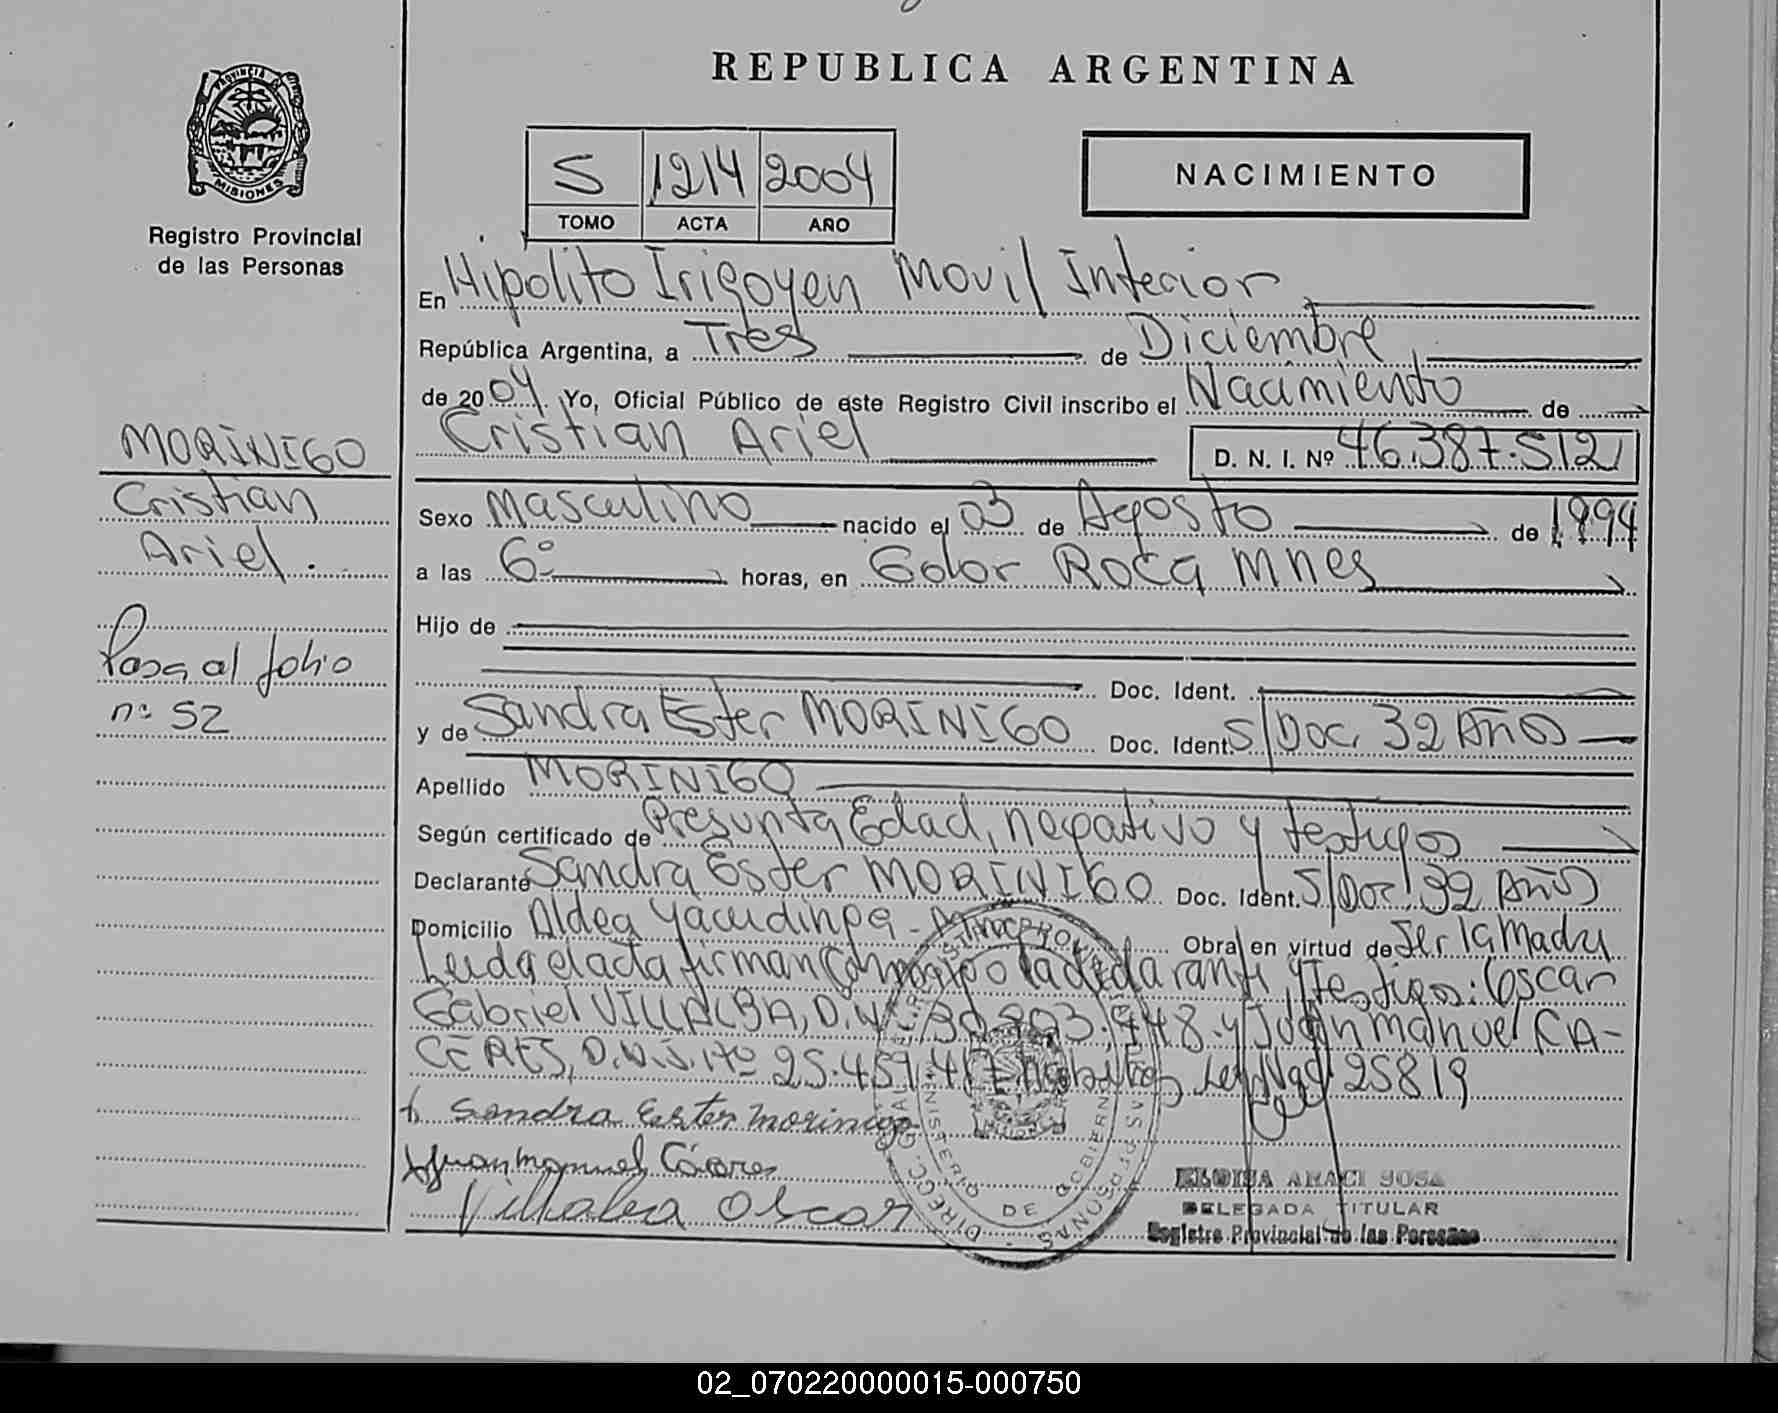 REPUBLICA ARGENTINA
PROVINCIA DE
MISIONES
Registro Provincial
de las Personas
S 1214 2004
TOMO ACTA AÑO
NACIMIENTO
En Hipolito Irigoyen Movil Interior
República Argentina, a Tres de Diciembre
de 2004. Yo, Oficial Público de este Registro Civil inscribo el Nacimiento de
Cristian Ariel D. N. I. Nº 46.387.512
MORINIGO
Cristian
Ariel.
Pasa al folio
nº 52
Sexo Masculino nacido el 03 de Agosto de 1994
a las 6º horas, en Golor Roca Mnes
Hijo de
Doc. Ident.
y de Sandra Ester MORINIGO Doc. Ident. S/Doc. 32 Años
Apellido MORINIGO
Según certificado de Presunta Edad, negativo y testigos
Declarante Sandra Ester MORINIGO Doc. Ident. S/Doc. 32 Años
Domicilio Aldea Yacudinpa - Obra en virtud de Ser la Madre
Leida el acta firman conmigo la declarante y testigos: Oscar
Gabriel VILLALBA, D.N. 948. y Juan Manuel CA-
CERES, D.N.I. Nº Ley Nac 25819
Sandra Ester Morinigo
Juan Manuel Cáceres
Villalba Oscar
ELOISA ARACI SOSA
DELEGADA TITULAR
Registro Provincial de las Personas
02_070220000015-000750